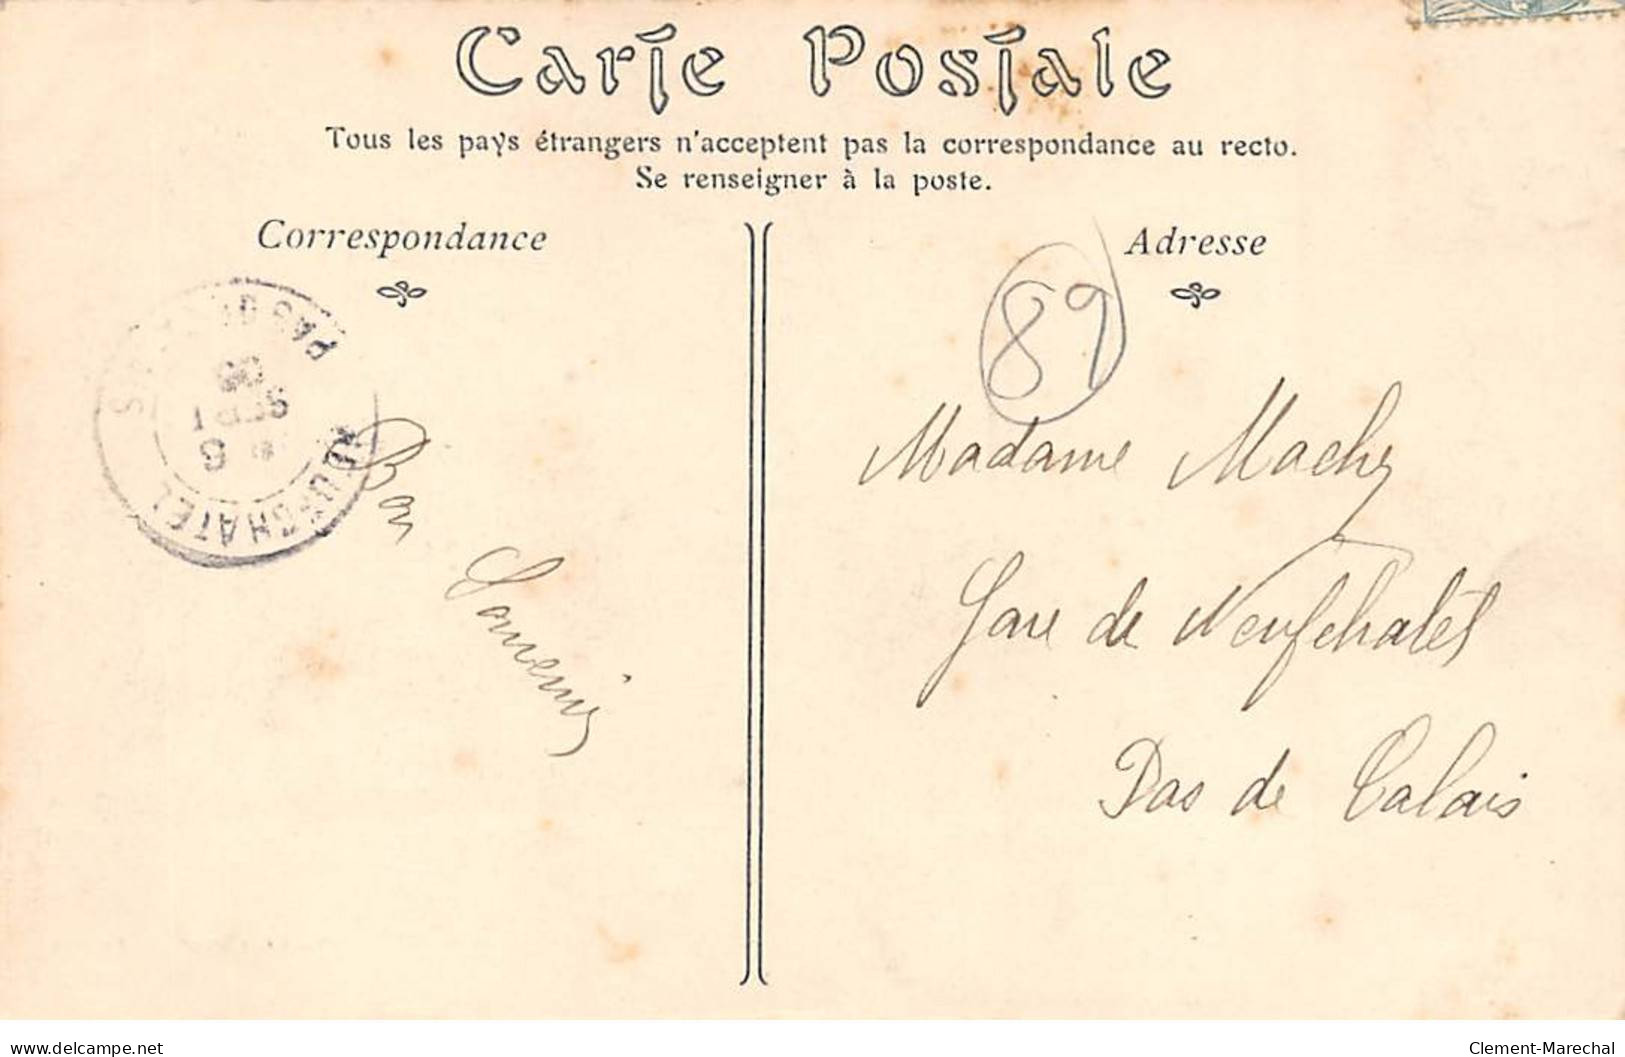 Carte Postale
Tous les pays étrangers n'acceptent pas la correspondance au recto.
Se renseigner à la poste.
Correspondance
Adresse
89
NEUFCHATEL
PAS
SEPT
6
Bon
Souvenir
Madame Machy
Gare de Neufchatel
Pas de Calais
www.delcampe.net
Clement-Marechal